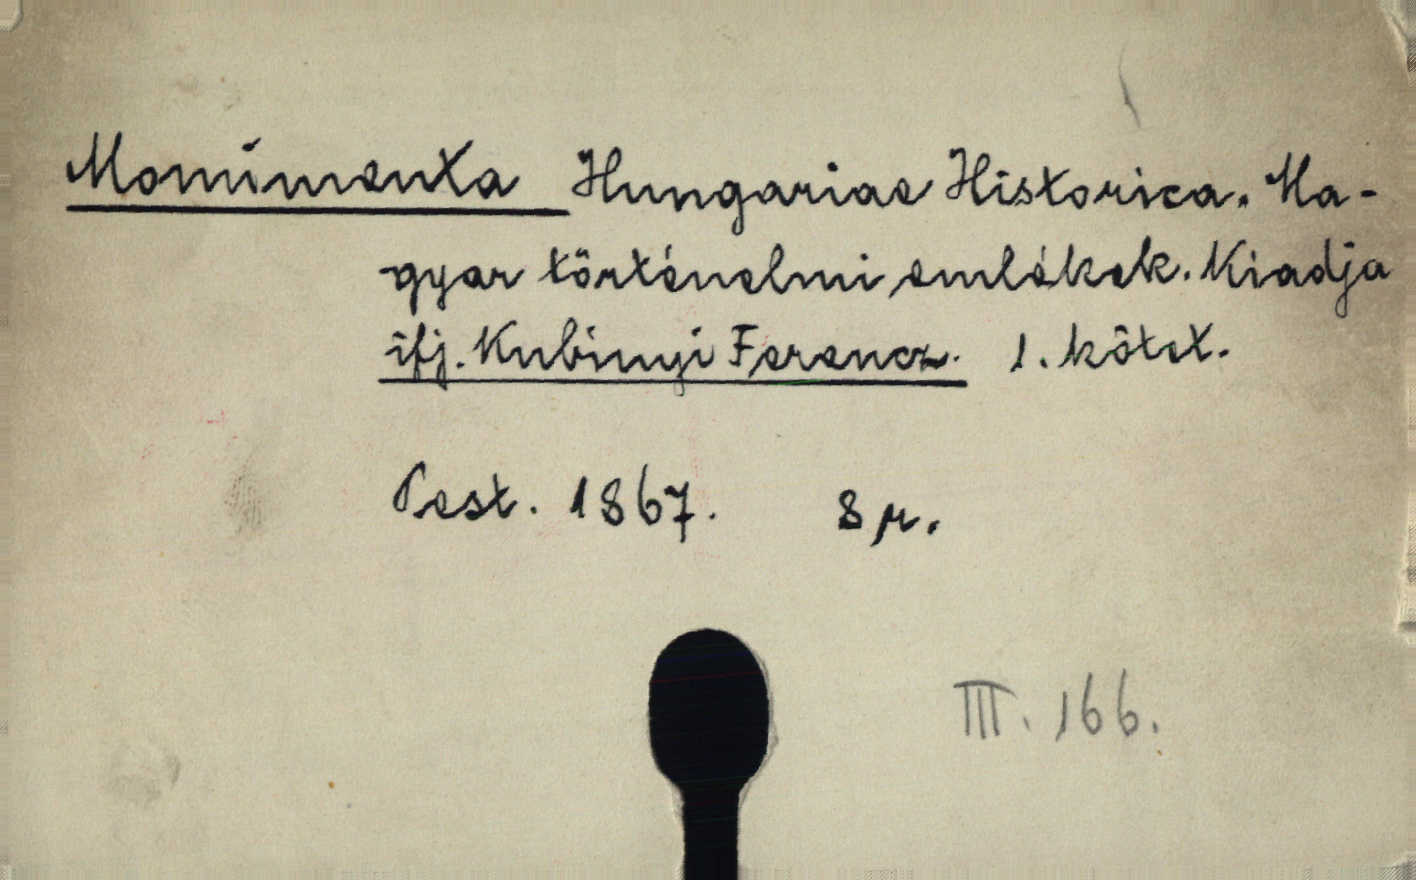 Monumenta Hungariae Historica. Ma-
gyar történelmi emlékek. Kiadja
ifj. Kubinyi Ferencz. 1. kötet.
Pest. 1867. 8 r.
III. 166.